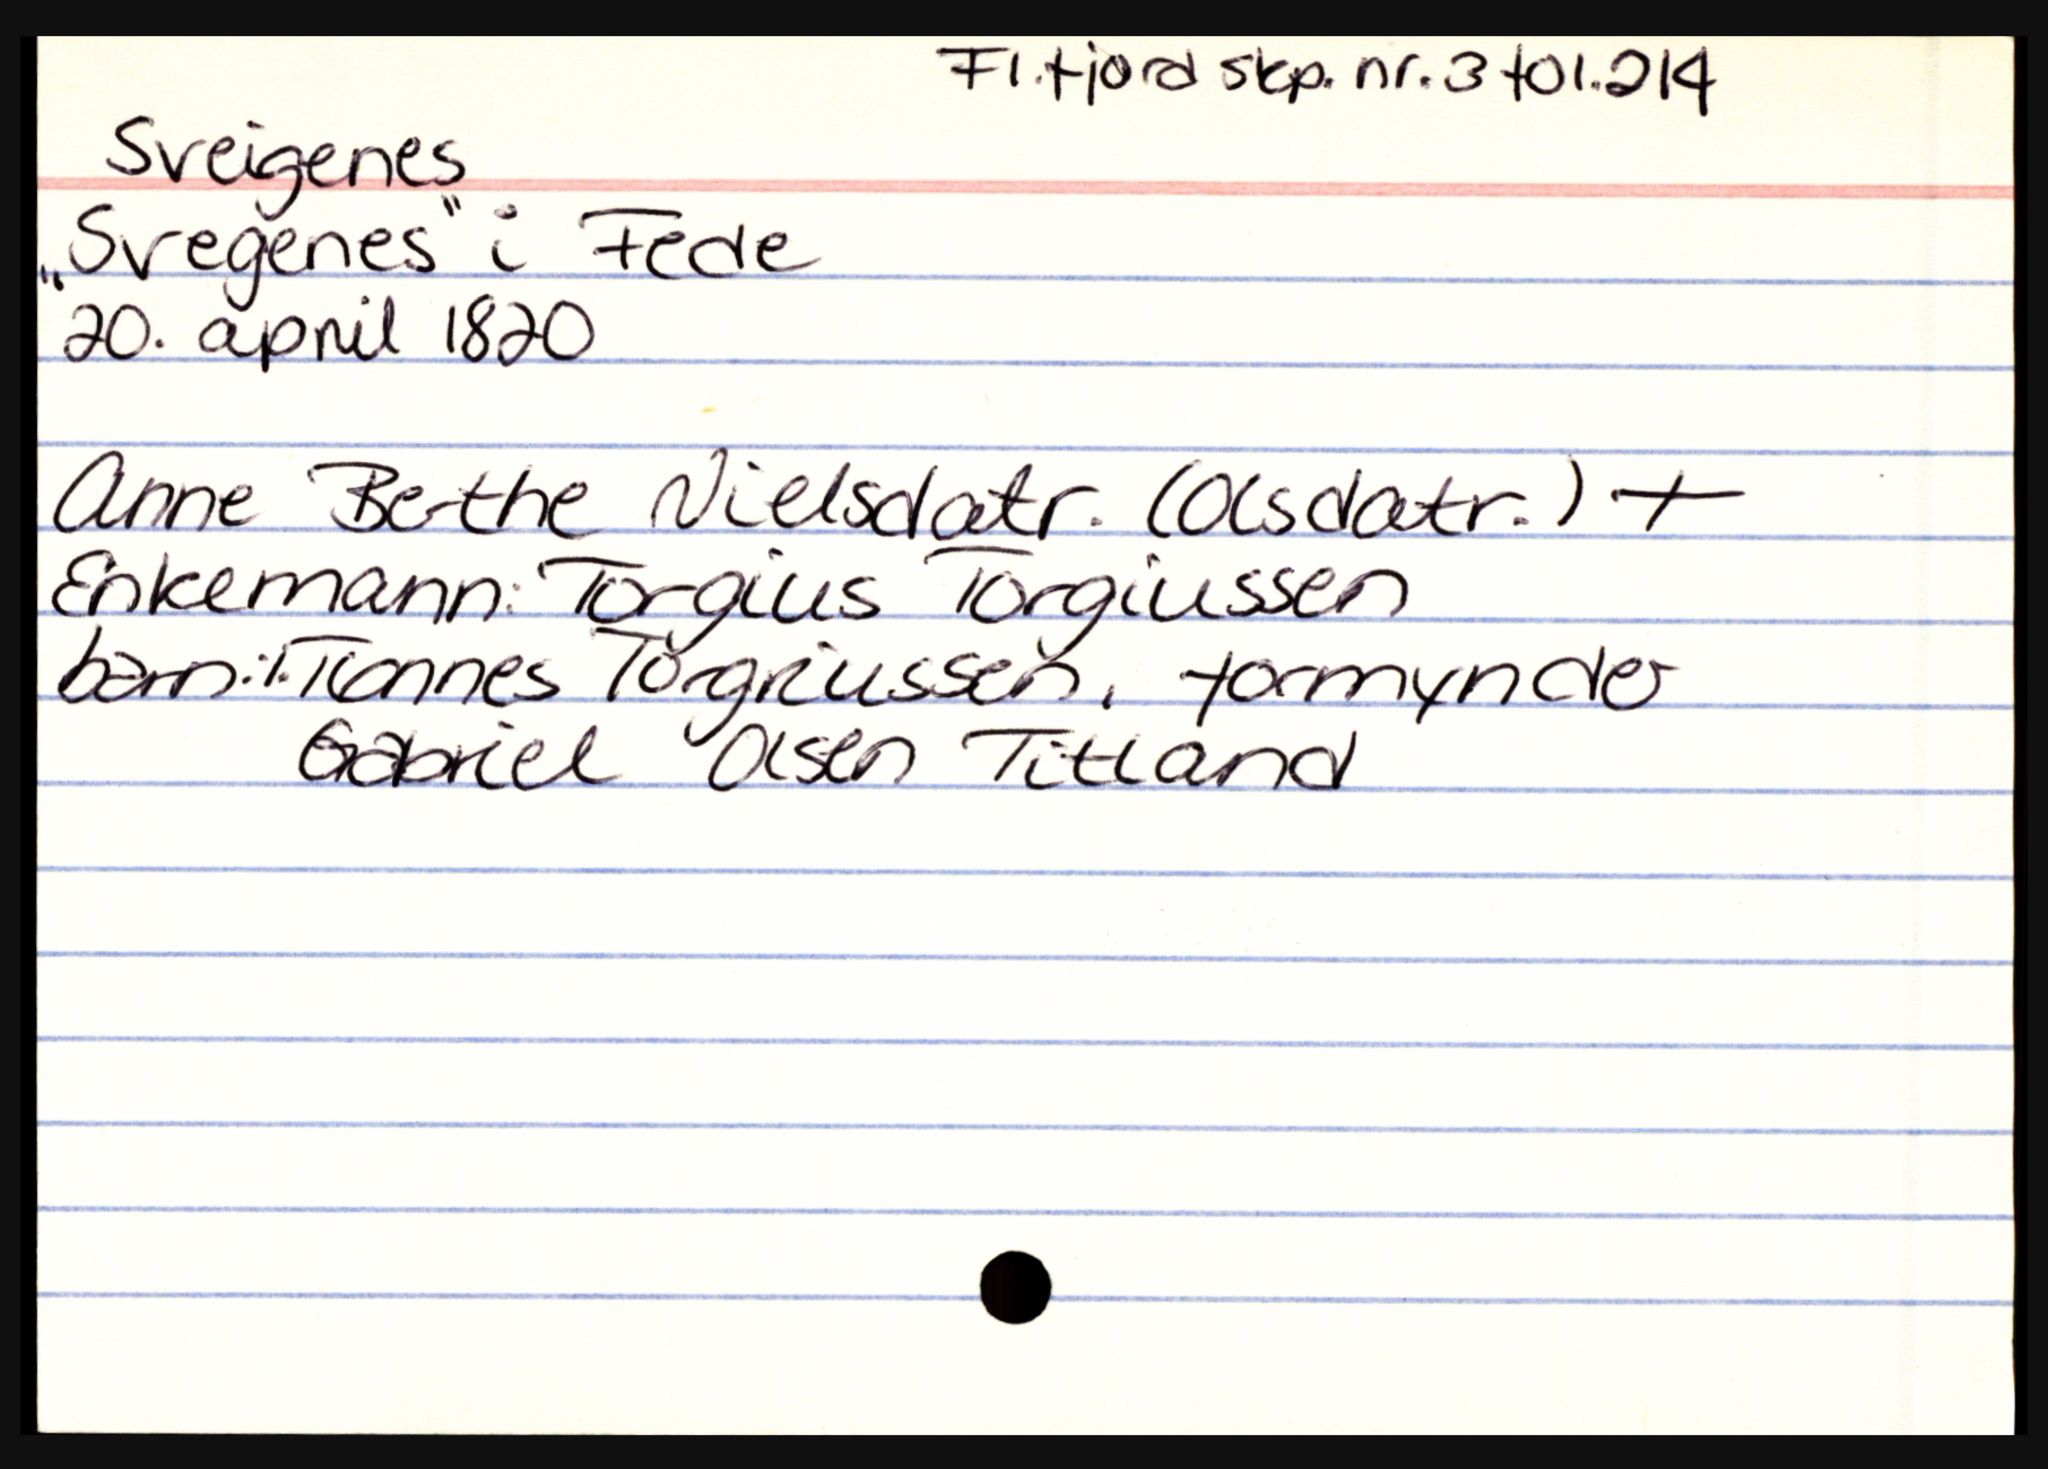 Fl.fjord skp. nr. 3 fol. 214
Sveigenes
„Svegenes“ i Fede
20. april 1820
Anne Berthe Nielsdatr. (Olsdatr.) +
Enkemann: Torgius Torgiussen
barn: 1. Tønnes Torgriussen, formynder
Gabriel Olsen Titland